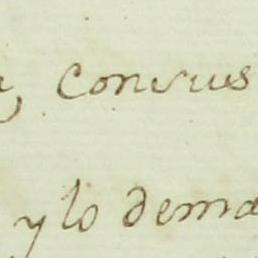 con sus
y lo dema